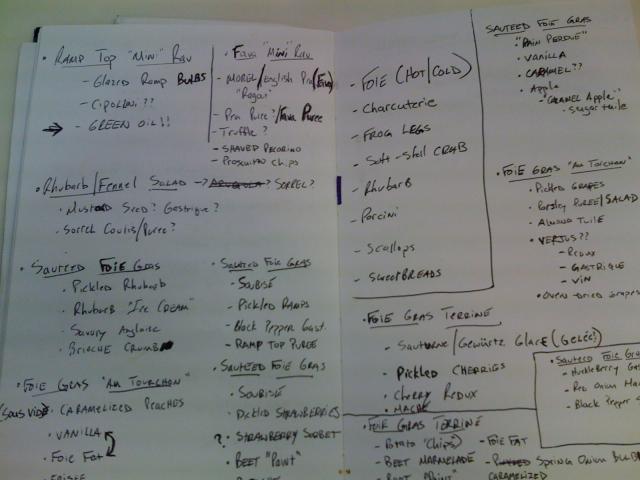 • RAMP TOP "MINI" RAV
- GLAZED RAMP BULBS
- CIPOLLINI??
→ - GREEN OIL!!
• FAVA "MINI" RAV.
- MOREL/ENGLISH PEA (FAVA)
"RAGOUT"
- PEA PUREE?/FAVA PUREE
- TRUFFLE?
- SHAVED PECORINO
- PROSCIUTTO CHIPS
• RHUBARB/FENNEL SALAD → ? SORREL?
• MUSTARD SEED? GASTRIQUE?
• SORREL COULIS/PUREE?
• SAUTEED FOIE GRAS
• PICKLED RHUBARB
• RHUBARB "ICE CREAM"
• SAVORY ANGLAISE
• BRIOCHE CRUMB
• SAUTEED FOIE GRAS
• SOUBISE
• PICKLED RAMPS
• BLACK PEPPER GAST.
- RAMP TOP PUREE
• FOIE GRAS "AU TOURCHON"
(SOUS VIDE) • CARAMELIZED PEACHES
• VANILLA
• FOIE FAT
• FRISEE
• SAUTEED FOIE GRAS
• SOUBISE
• PICKLED STRAWBERRIES
? • STRAWBERRY SORBET
• BEET "PAINT"
- FOIE (HOT/COLD)
- CHARCUTERIE
- FROG LEGS
- SOFT-SHELL CRAB
- RHUBARB
- PORCINI
- SCALLOPS
- SWEETBREADS
SAUTEED FOIE GRAS
• "PAIN PERDUE"
• VANILLA
• CARAMEL??
• APPLE
"CARAMEL APPLE"
- SUGAR TUILE
• FOIE GRAS "AU TORCHON"
• PICKLED GRAPES
• PARSLEY PUREE/SALAD
• ALMOND TUILE
• VERJUS??
- REDUX
- GASTRIQUE
- VIN
• OVEN-DRIED GRAPES
• FOIE GRAS TERRINE
- SAUTERNE/GEWÜRTZ GLACE (GELÉE!)
- PICKLED CHERRIES
- CHERRY REDUX
- MACHE
• SAUTEED FOIE GRAS
- HUCKLEBERRY GAS
- RED ONION MAR
- BLACK PEPPER
• FOIE GRAS TERRINE
- POTATO "CHIPS"
- BEET MARMELADE
- BEET "PAINT"
- FOIE FAT
- SPRING ONION BULBS
CARAMELIZED